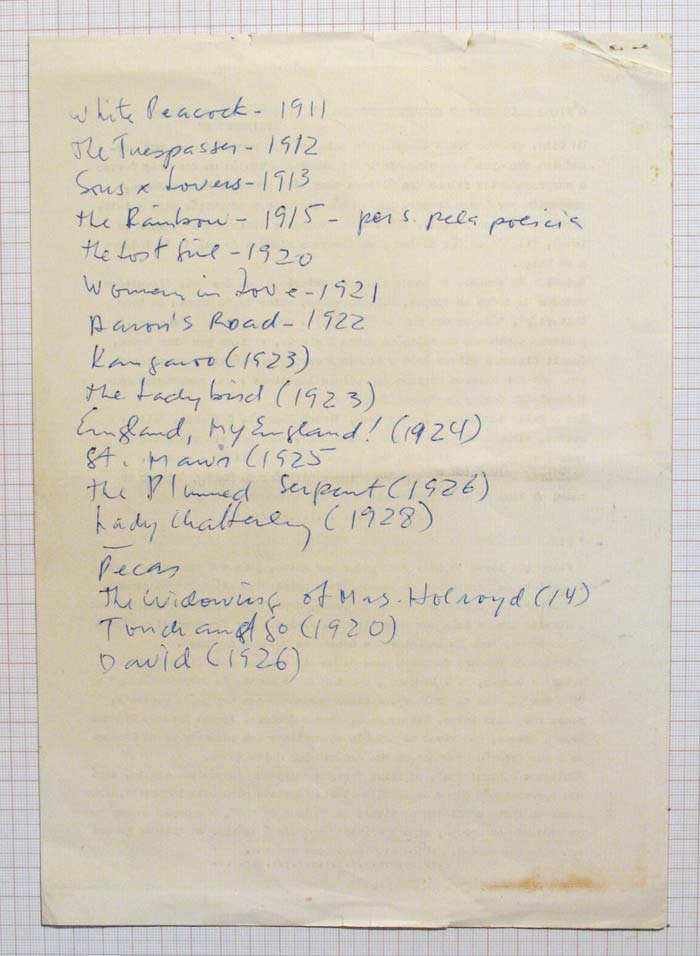 White Peacock - 1911
The Trespasser - 1912
Sons & Lovers - 1913
the Rainbow - 1915 - pers. pela policia
the Lost Girl - 1920
Women in Love - 1921
Aaron's Road - 1922
Kangaroo (1923)
the Ladybird (1923)
England, My England! (1924)
St. Mawr (1925
the Plumed Serpent (1926)
Lady Chatterley (1928)
Pecas
the widowing of Mrs. Holroyd (14)
Touch and go (1920)
David (1926)